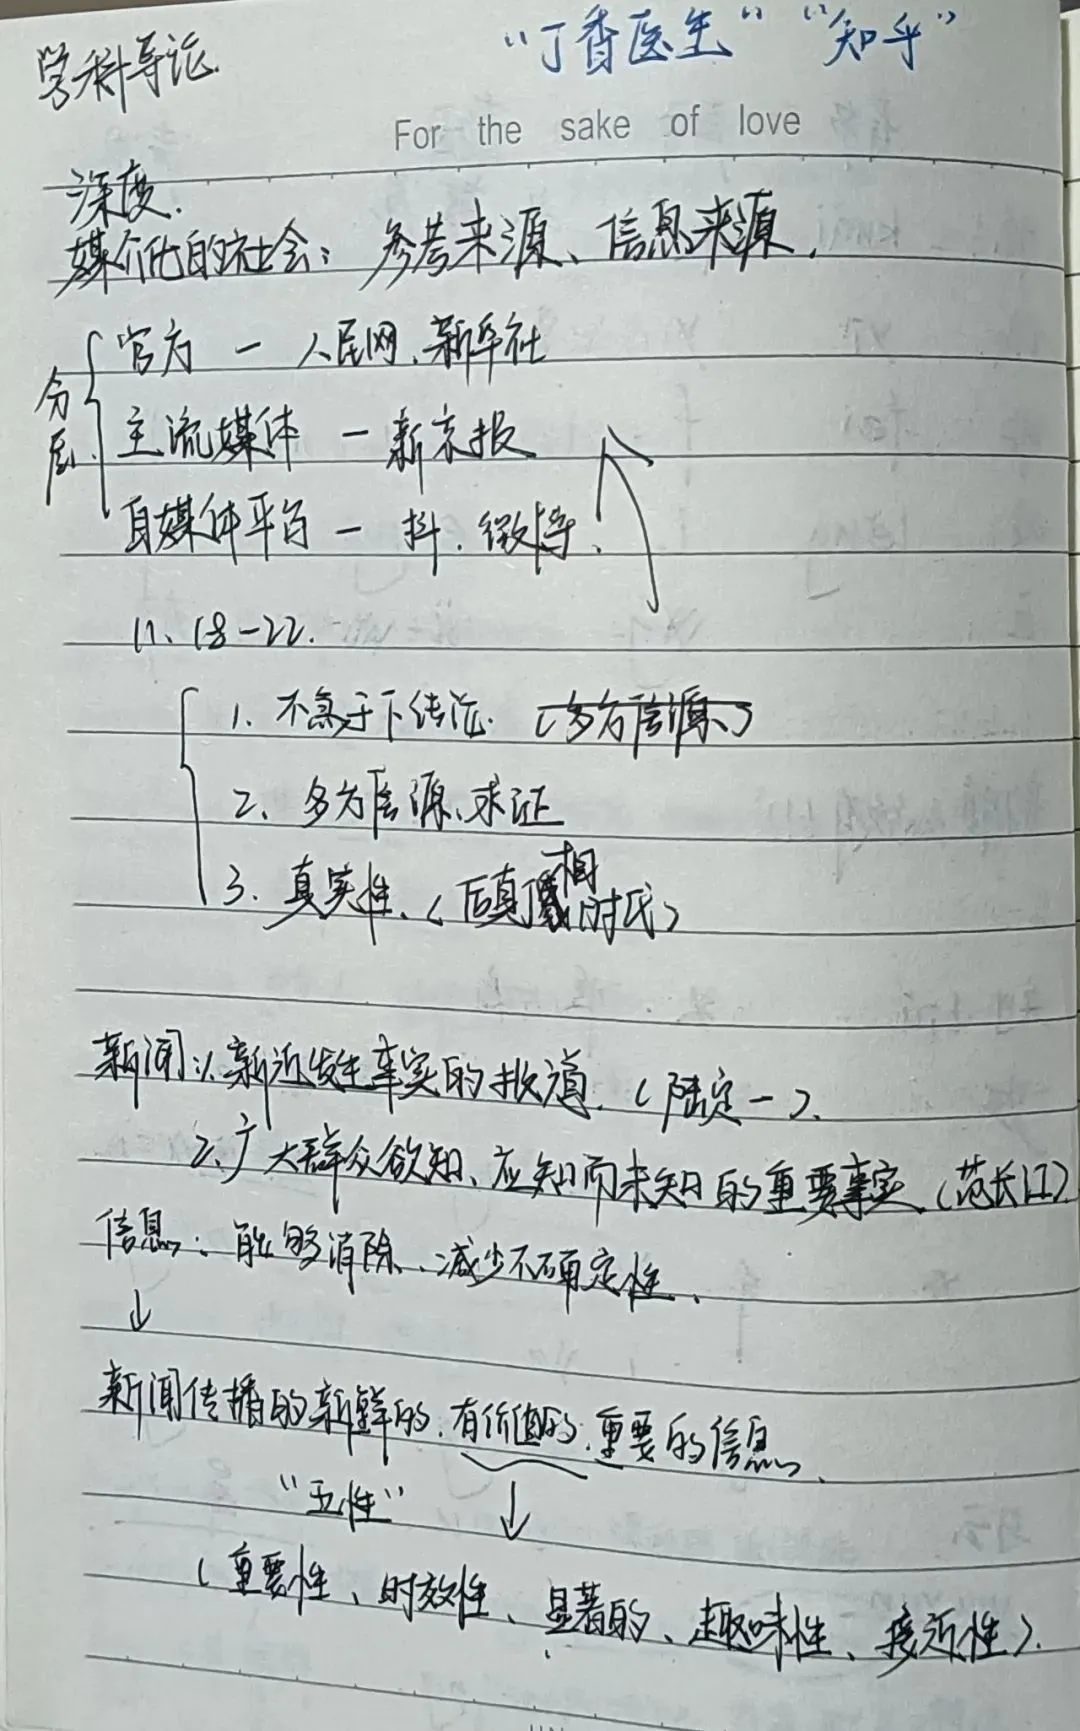 学科导论 “丁香医生” “知乎”
For the sake of love
深度.
媒介化的社会: 参考来源、信息来源.
分层
官方 — 人民网.新华社
主流媒体 — 新京报
自媒体平台 — 抖.微博.
11、18-22.
1. 不急于下结论. (多方信源、)
2. 多方信源、求证
3. 真实性、(后真相时代)
新闻: 1. 新近发生事实的报道. (陆定一).
2. 广大群众欲知、应知而未知的重要事实. (范长江)
信息: 能够消除、减少不确定性.
↓
新闻传播的新鲜的.有价值的.重要的信息.
“五性” ↓
(重要性、时效性、显著的、趣味性、接近性).